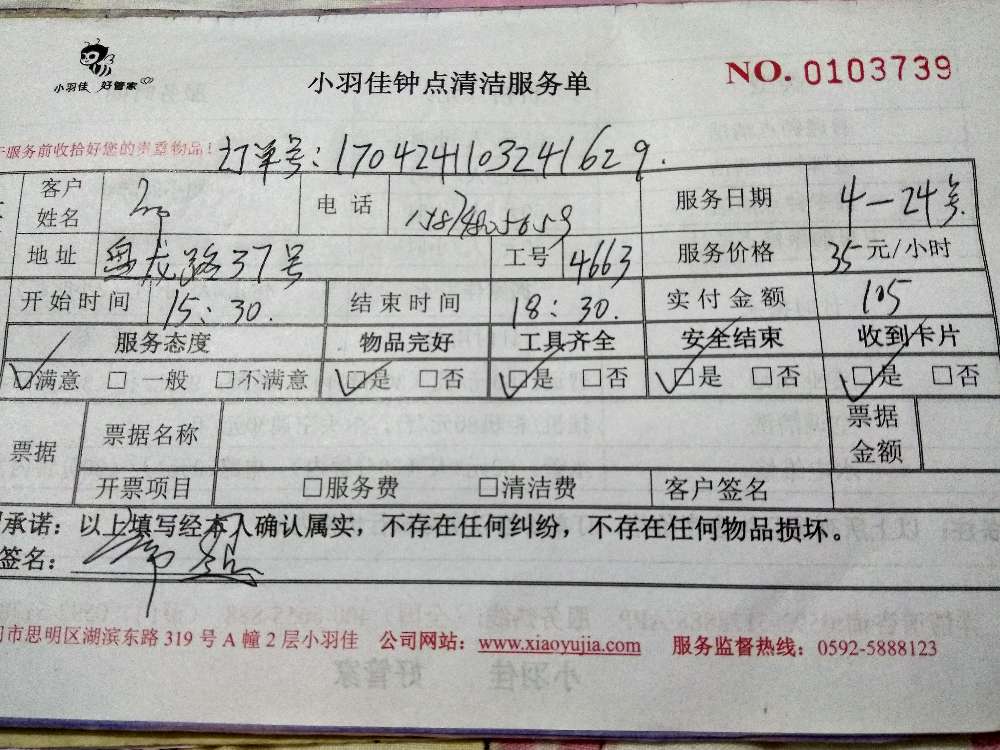 小羽佳 好管家
小羽佳钟点清洁服务单
NO. 0103739
服务前收拾好您的崇重物品!
订单号:1704241103241629.
客户姓名 电话 服务日期 4-24号
地址 盘龙路37号 工号 4663 服务价格 35元/小时
开始时间 15:30. 结束时间 18:30. 实付金额 105
服务态度 物品完好 工具齐全 安全结束 收到卡片
☑满意 □一般 □不满意 ☑是 □否 ☑是 □否 ☑是 □否 ☑是 □否
票据 票据名称 票据金额
开票项目 □服务费 □清洁费 客户签名
承诺:以上填写经本人确认属实,不存在任何纠纷,不存在任何物品损坏。
签名:
市思明区湖滨东路 319 号 A 幢 2 层小羽佳 公司网站:www.xiaoyujia.com 服务监督热线:0592-5888123